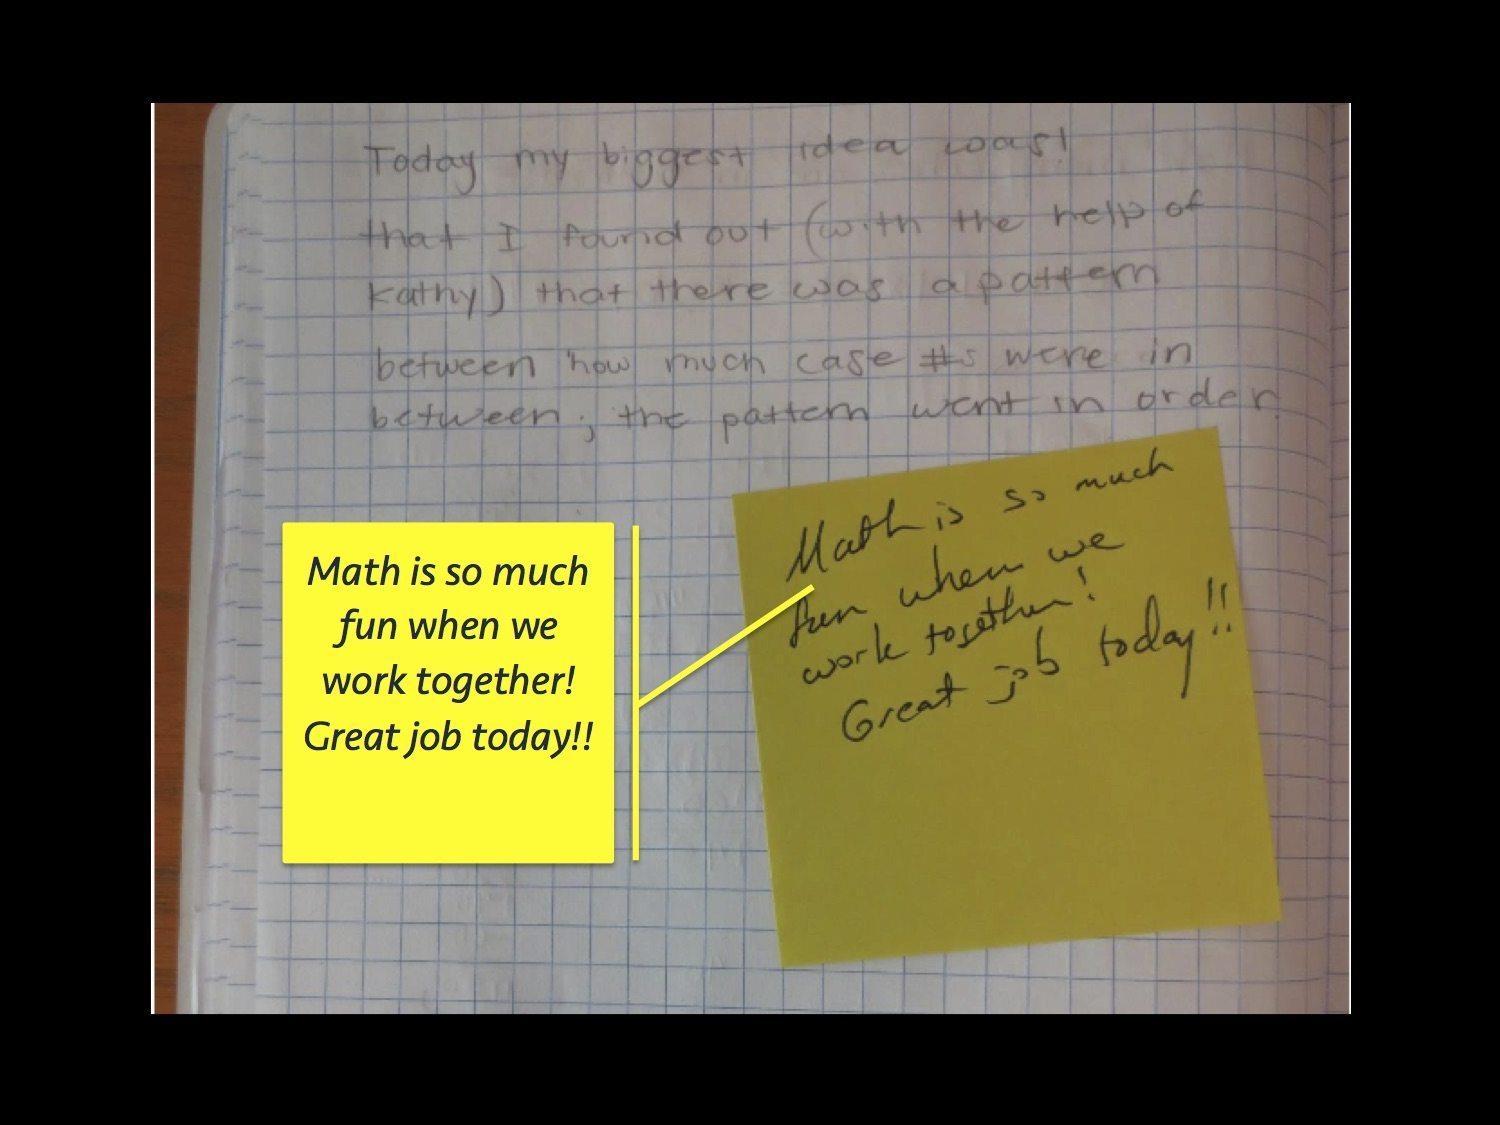 Today my biggest idea was!
that I found out (with the help of
Kathy) that there was a pattern
between how much case #s were in
between; the pattern went in order.
Math is so much
fun when we
work together!
Great job today!!
Math is so much
fun when we
work together!
Great job today!!